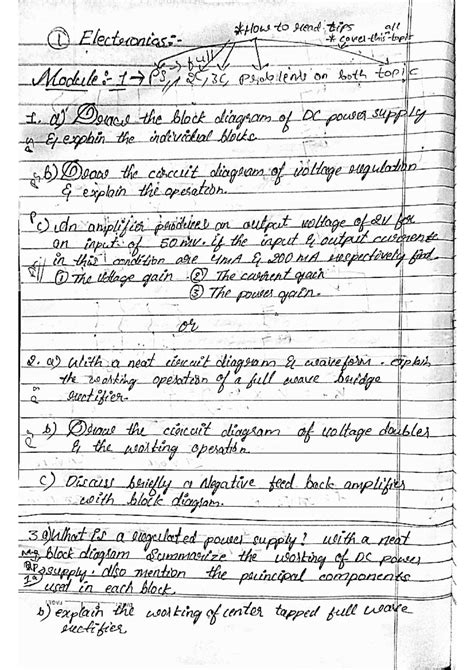 *How to read tips all
① Electronics:- * cover this topic
full
Module:-1→ PS, 2C, 3C, Problems on both topic
1. a) Draw the block diagram of DC power supply
& explain the individual blocks.
b) Draw the circuit diagram of voltage regulation
& explain the operation.
P c) An amplifier produces an output voltage of 2V for
an input of 50mv. if the input & output currents
in this condition are 4mA & 200 mA respectively find
① The voltage gain ② The current gain
③ The power gain.
or
2. a) With a neat circuit diagram & waveform. explain
the working operation of a full wave bridge
rectifier.
b) Draw the circuit diagram of voltage doubler
& the working operation.
c) Discuss briefly a Negative feed back amplifier
with block diagram.
3 a) What is a regulated power supply? with a neat
block diagram Summarize the working of DC power
supply. Also mention the principal components
used in each block.
b) explain the working of center tapped full wave
rectifier